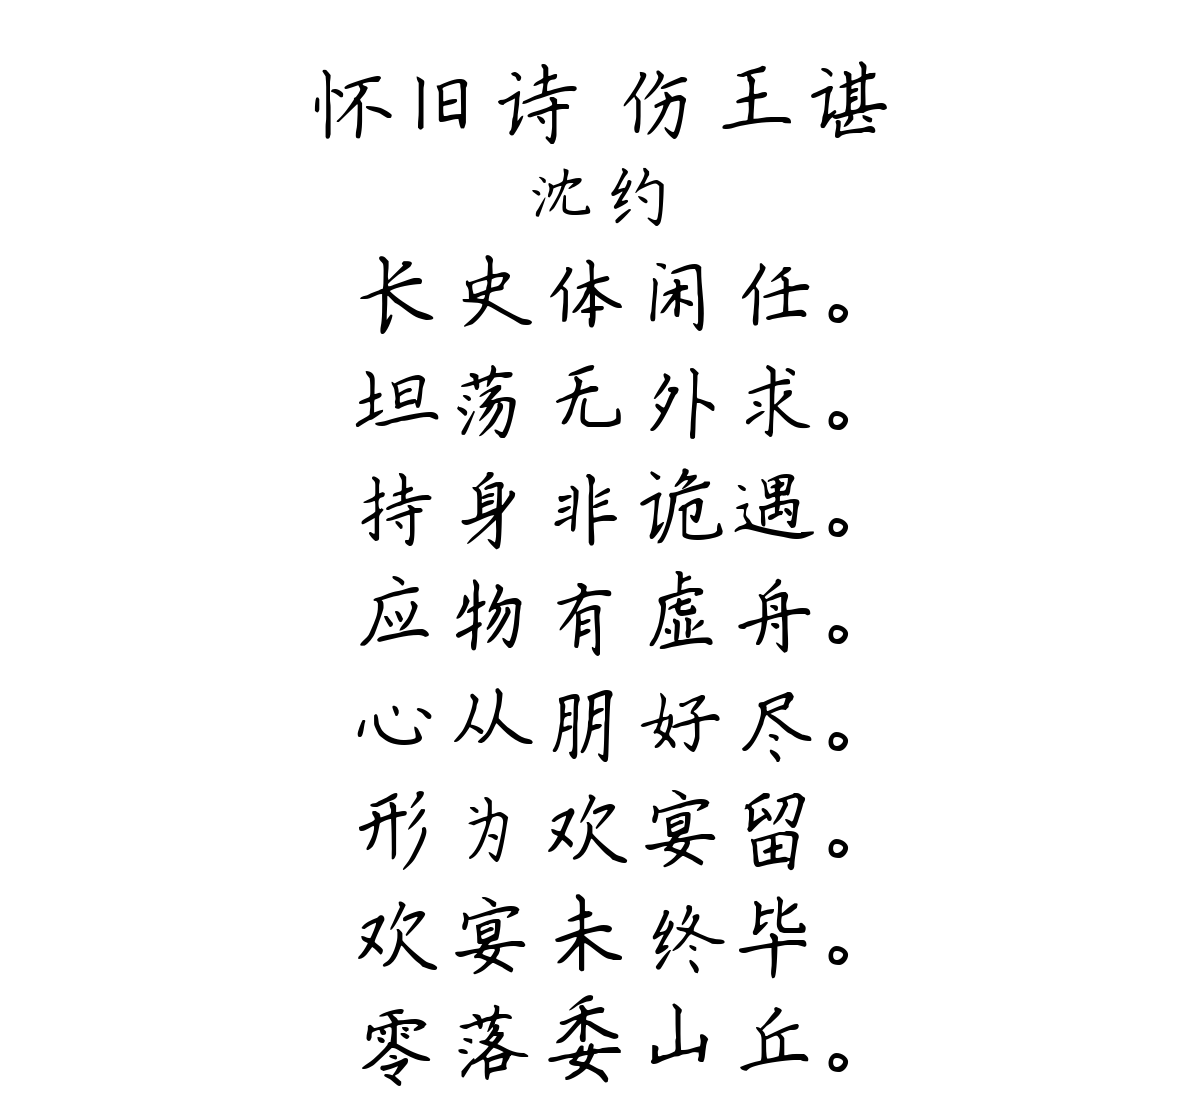 怀旧诗 伤王谌
沈约
长史体闲任。
坦荡无外求。
持身非诡遇。
应物有虚舟。
心从朋好尽。
形为欢宴留。
欢宴未终毕。
零落委山丘。